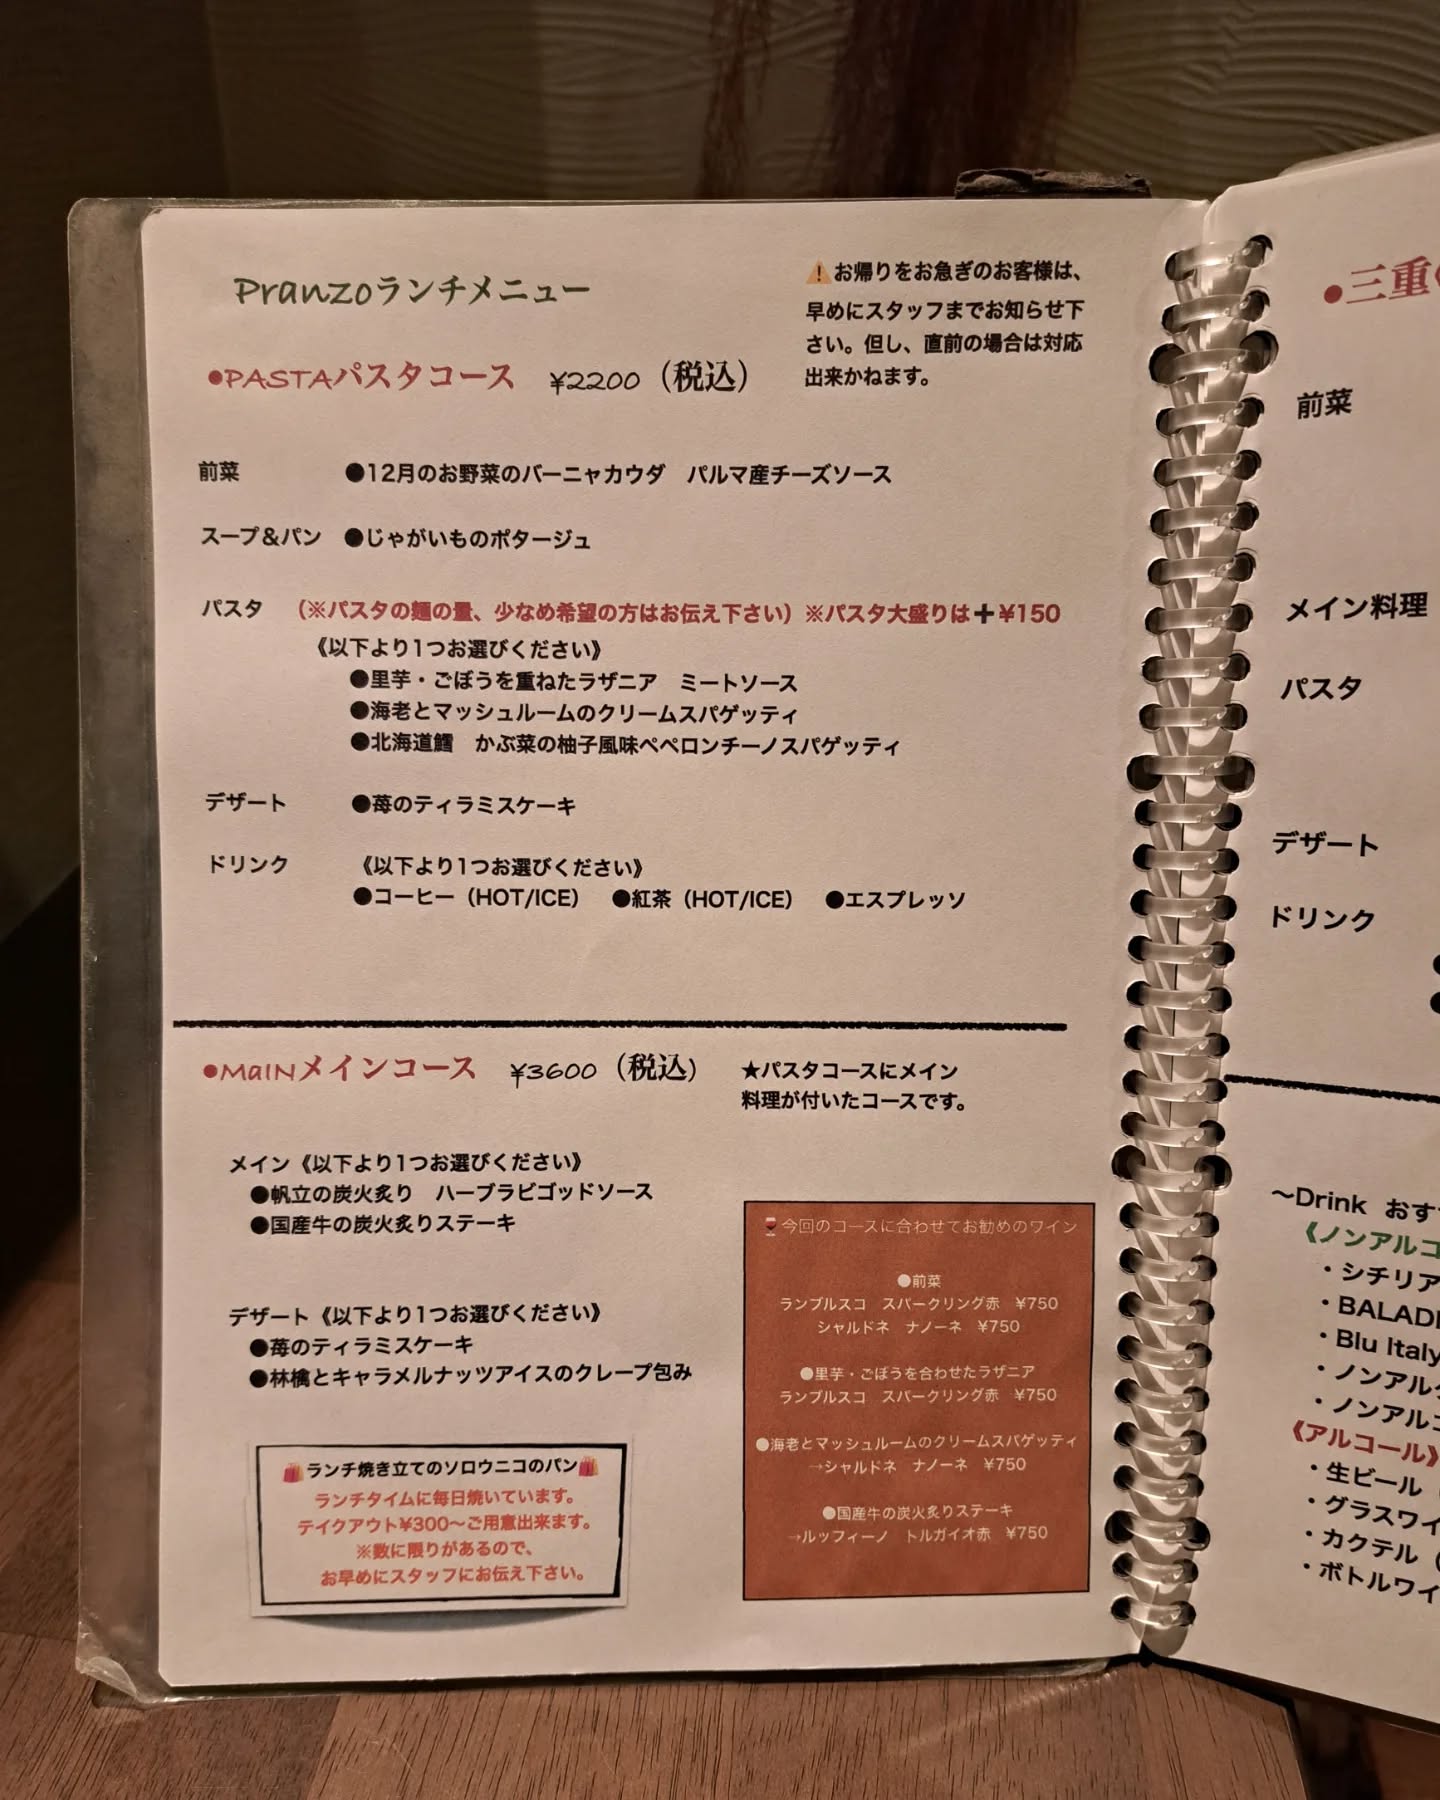 Pranzoランチメニュー
⚠お帰りをお急ぎのお客様は、
早めにスタッフまでお知らせ下
さい。但し、直前の場合は対応
出来かねます。
●PASTAパスタコース ¥2200（税込）
前菜 ●12月のお野菜のバーニャカウダ パルマ産チーズソース
スープ&パン ●じゃがいものポタージュ
パスタ （※パスタの麺の量、少なめ希望の方はお伝え下さい）※パスタ大盛りは➕¥150
《以下より1つお選びください》
●里芋・ごぼうを重ねたラザニア ミートソース
●海老とマッシュルームのクリームスパゲッティ
●北海道鱈 かぶ菜の柚子風味ペペロンチーノスパゲッティ
デザート ●苺のティラミスケーキ
ドリンク 《以下より1つお選びください》
●コーヒー（HOT/ICE） ●紅茶（HOT/ICE） ●エスプレッソ
●MaINメインコース ¥3600（税込）
★パスタコースにメイン
料理が付いたコースです。
メイン《以下より1つお選びください》
●帆立の炭火炙り ハーブラビゴッドソース
●国産牛の炭火炙りステーキ
デザート《以下より1つお選びください》
●苺のティラミスケーキ
●林檎とキャラメルナッツアイスのクレープ包み
🛍ランチ焼き立てのソロウニコのパン🛍
ランチタイムに毎日焼いています。
テイクアウト¥300〜ご用意出来ます。
※数に限りがあるので、
お早めにスタッフにお伝え下さい。
🍷今回のコースに合わせてお勧めのワイン
●前菜
ランブルスコ スパークリング赤 ¥750
シャルドネ ナノーネ ¥750
●里芋・ごぼうを合わせたラザニア
ランブルスコ スパークリング赤 ¥750
●海老とマッシュルームのクリームスパゲッティ
→シャルドネ ナノーネ ¥750
●国産牛の炭火炙りステーキ
→ルッフィーノ トルガイオ赤 ¥750
●三重
前菜
メイン料理
パスタ
デザート
ドリンク
〜Drink おす
《ノンアルコ
・シチリア
・BALADI
・Blu Italy
・ノンアル
・ノンアルコ
《アルコール》
・生ビール
・グラスワイ
・カクテル（
・ボトルワイ